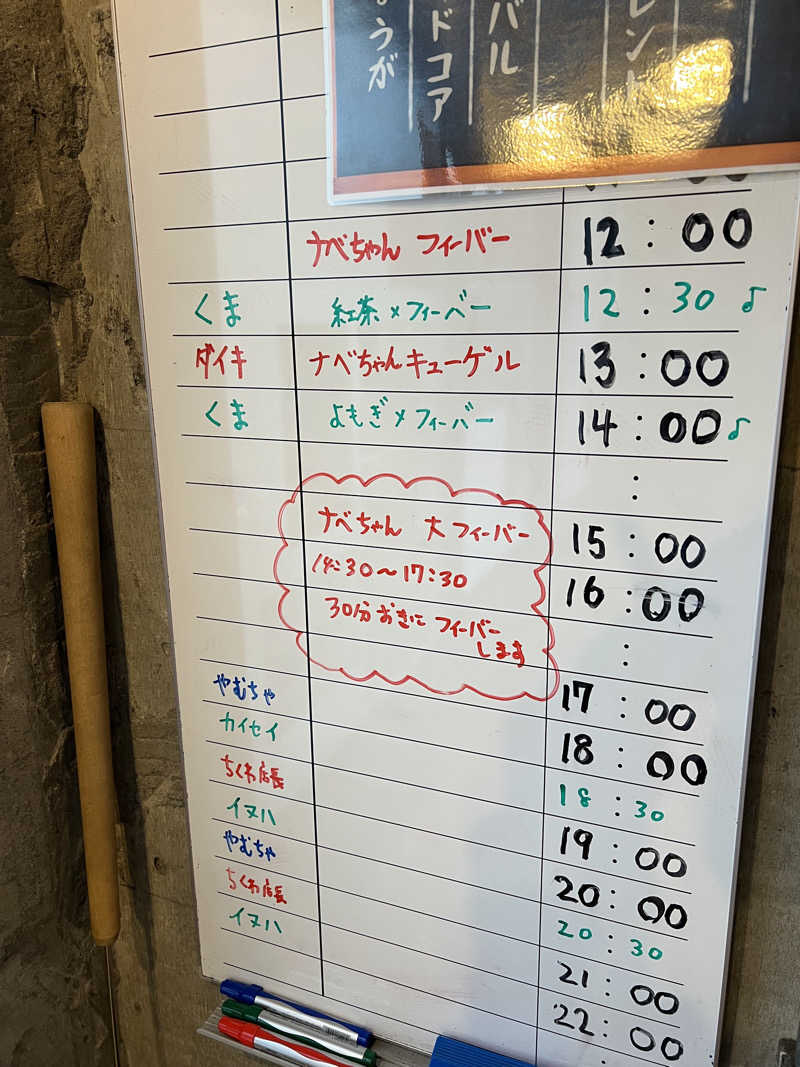 ょうが
ドコア
バル
レント
ナベちゃん フィーバー 12:00
くま 紅茶×フィーバー 12:30 ♪
ダイキ ナベちゃんキューゲル 13:00
くま よもぎ×フィーバー 14:00 ♪
:
ナベちゃん 大フィーバー 15:00
14:30〜17:30 16:00
30分おきに フィーバー
します
:
やむちゃ 17:00
カイセイ 18:00
ちくわ店長 18:30
イヌハ 19:00
やむちゃ 20:00
ちくわ店長 20:30
イヌハ 21:00
22:00